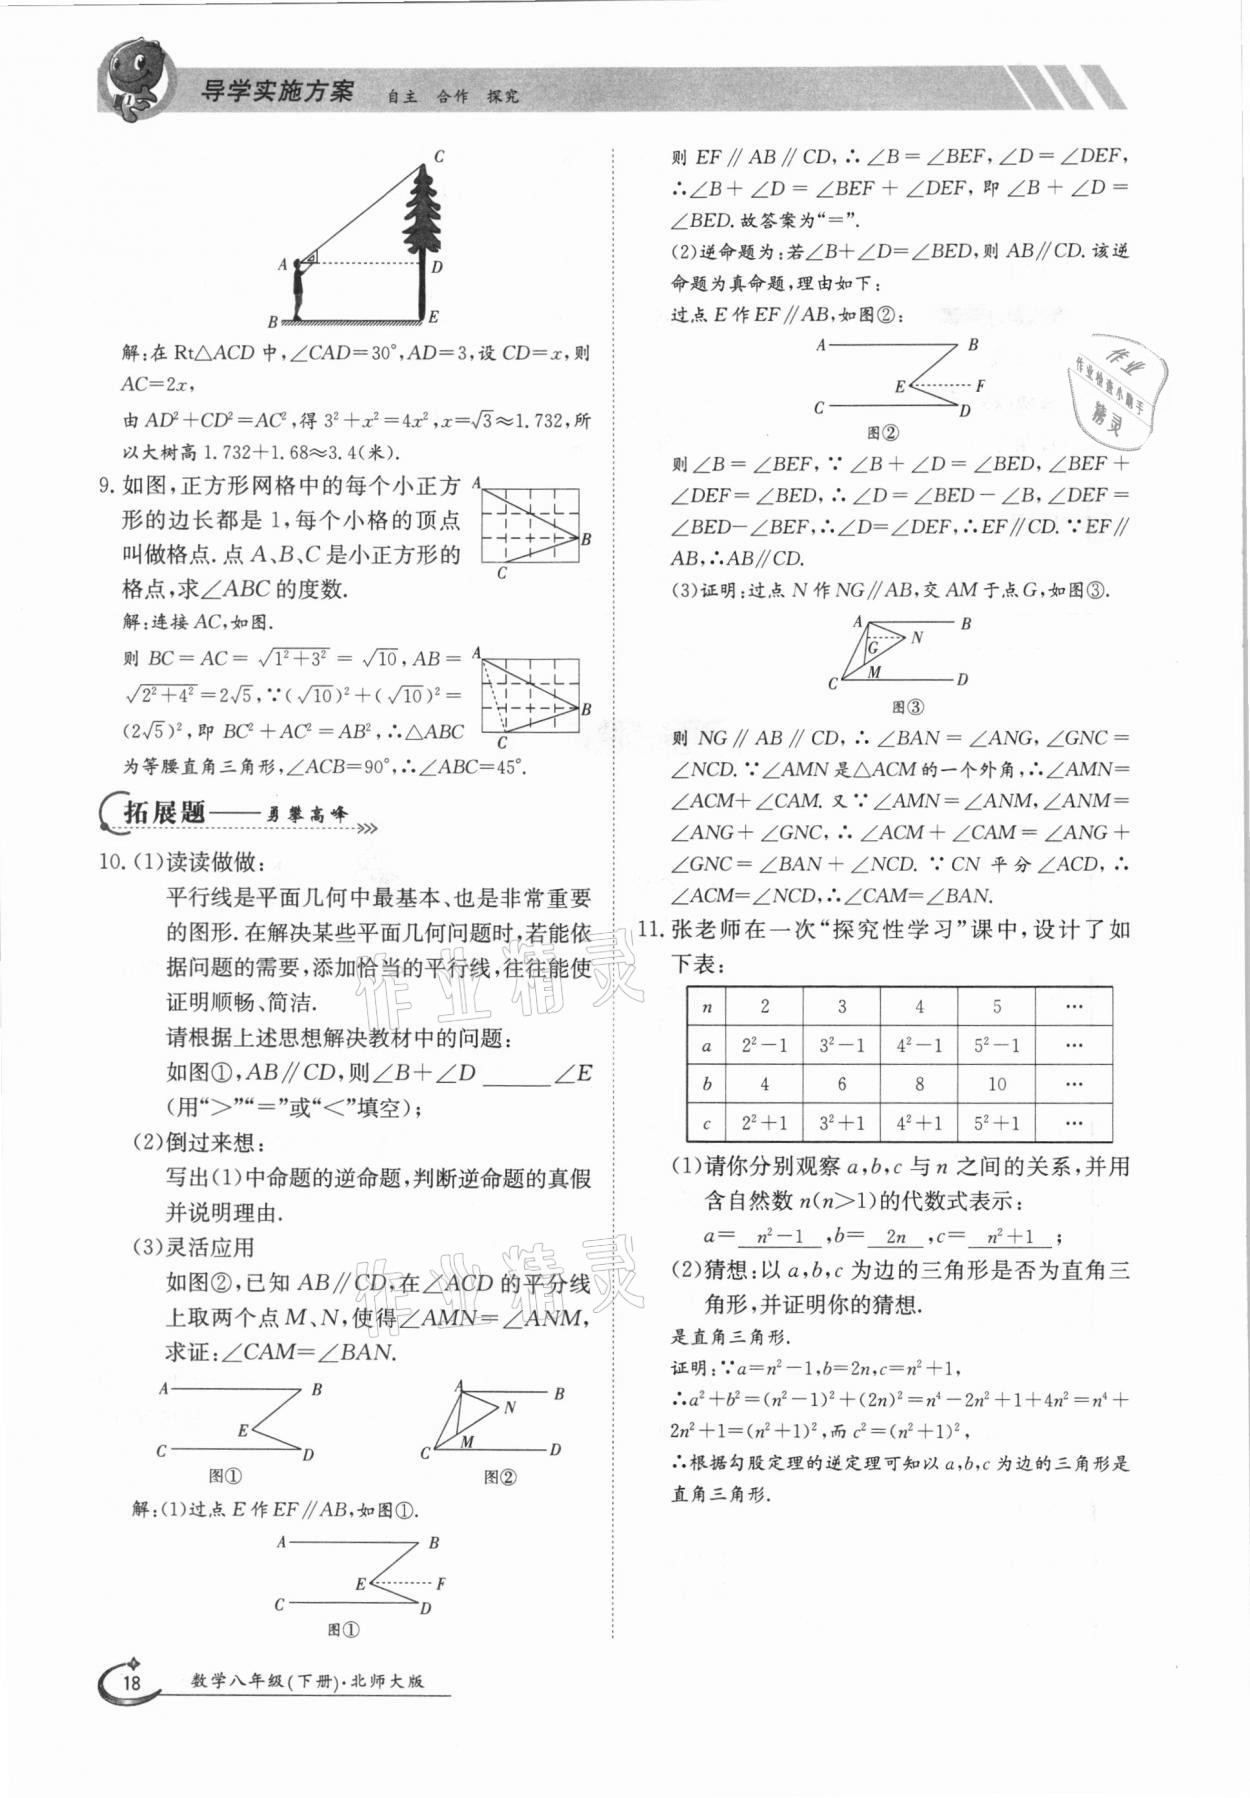 导学实施方案 自主 合作 探究
C
A
D
B
E
解:在 Rt△ACD 中,∠CAD=30°,AD=3,设 CD=x,则
AC=2x,
由 AD²+CD²=AC²,得 3²+x²=4x²,x=√3≈1.732,所
以大树高 1.732+1.68≈3.4(米).
9. 如图,正方形网格中的每个小正方
形的边长都是 1,每个小格的顶点
叫做格点. 点 A、B、C 是小正方形的
格点,求∠ABC 的度数.
A
B
C
解:连接 AC,如图.
则 BC=AC=√(1²+3²)=√10,AB=
√(2²+4²)=2√5,∵(√10)²+(√10)²=
(2√5)²,即 BC²+AC²=AB²,∴△ABC
为等腰直角三角形,∠ACB=90°,∴∠ABC=45°.
A
B
C
拓展题——勇攀高峰
10. (1)读读做做:
平行线是平面几何中最基本、也是非常重要
的图形. 在解决某些平面几何问题时,若能依
据问题的需要,添加恰当的平行线,往往能使
证明顺畅、简洁.
请根据上述思想解决教材中的问题:
如图①,AB∥CD,则∠B+∠D ______ ∠E
(用“>”“=”或“<”填空);
(2)倒过来想:
写出(1)中命题的逆命题,判断逆命题的真假
并说明理由.
(3)灵活应用
如图②,已知 AB∥CD,在∠ACD 的平分线
上取两个点 M、N,使得∠AMN=∠ANM,
求证:∠CAM=∠BAN.
A B
E
C D
图①
A B
N
M
C D
图②
解:(1)过点 E 作 EF∥AB,如图①.
A B
E F
C D
图①
则 EF∥AB∥CD,∴∠B=∠BEF,∠D=∠DEF,
∴∠B+∠D=∠BEF+∠DEF,即∠B+∠D=
∠BED. 故答案为“=”.
(2)逆命题为:若∠B+∠D=∠BED,则 AB∥CD. 该逆
命题为真命题,理由如下:
过点 E 作 EF∥AB,如图②:
A B
E F
C D
图②
则∠B=∠BEF,∵∠B+∠D=∠BED,∠BEF+
∠DEF=∠BED,∴∠D=∠BED-∠B,∠DEF=
∠BED-∠BEF,∴∠D=∠DEF,∴EF∥CD. ∵EF∥
AB,∴AB∥CD.
(3)证明:过点 N 作 NG∥AB,交 AM 于点 G,如图③.
A B
N
G
M
C D
图③
则 NG∥AB∥CD,∴∠BAN=∠ANG,∠GNC=
∠NCD. ∵∠AMN 是△ACM 的一个外角,∴∠AMN=
∠ACM+∠CAM. 又∵∠AMN=∠ANM,∠ANM=
∠ANG+∠GNC,∴∠ACM+∠CAM=∠ANG+
∠GNC=∠BAN+∠NCD. ∵CN 平分∠ACD,∴
∠ACM=∠NCD,∴∠CAM=∠BAN.
11. 张老师在一次“探究性学习”课中,设计了如
下表:
n 2 3 4 5 …
a 2²-1 3²-1 4²-1 5²-1 …
b 4 6 8 10 …
c 2²+1 3²+1 4²+1 5²+1 …
(1)请你分别观察 a,b,c 与 n 之间的关系,并用
含自然数 n(n>1)的代数式表示:
a= n²-1 ,b= 2n ,c= n²+1 ;
(2)猜想:以 a,b,c 为边的三角形是否为直角三
角形,并证明你的猜想.
是直角三角形.
证明:∵a=n²-1,b=2n,c=n²+1,
∴a²+b²=(n²-1)²+(2n)²=n⁴-2n²+1+4n²=n⁴+
2n²+1=(n²+1)²,而 c²=(n²+1)²,
∴根据勾股定理的逆定理可知以 a,b,c 为边的三角形是
直角三角形.
作业
作业检查小助手
精灵
作业精灵
作业精灵
18 数学八年级(下册)·北师大版